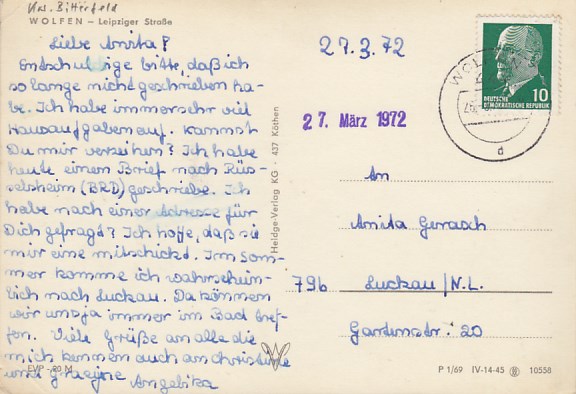 Krs. Bitterfeld
WOLFEN – Leipziger Straße
Liebe Anita!
Entschuldige bitte, daß ich
so lange nicht geschrieben ha-
be. Ich habe immer sehr viel
Hausaufgaben auf. Kannst
Du mir verzeihen? Ich habe
heute einen Brief nach Rüs-
selsheim (BRD) geschrieben. Ich
habe nach einer Adresse für
Dich gefragt? Ich hoffe, daß sie
mir eine mitschickt. Im Som-
mer komme ich wahrschein-
lich nach Luckau. Da können
wir uns ja immer im Bad tref-
fen. Viele Grüße an alle die
mich kennen auch an Christine
und
Angelika
EVP -,20 M
Heldge-Verlag KG · 437 Köthen
27.3.72
27. März 1972
WOL
d
DEUTSCHE
DEMOKRATISCHE REPUBLIK
10
An
Anita Gerasch
796 Luckau/N.L.
Gartenstr. 20
P 1/69 IV-14-45 10558